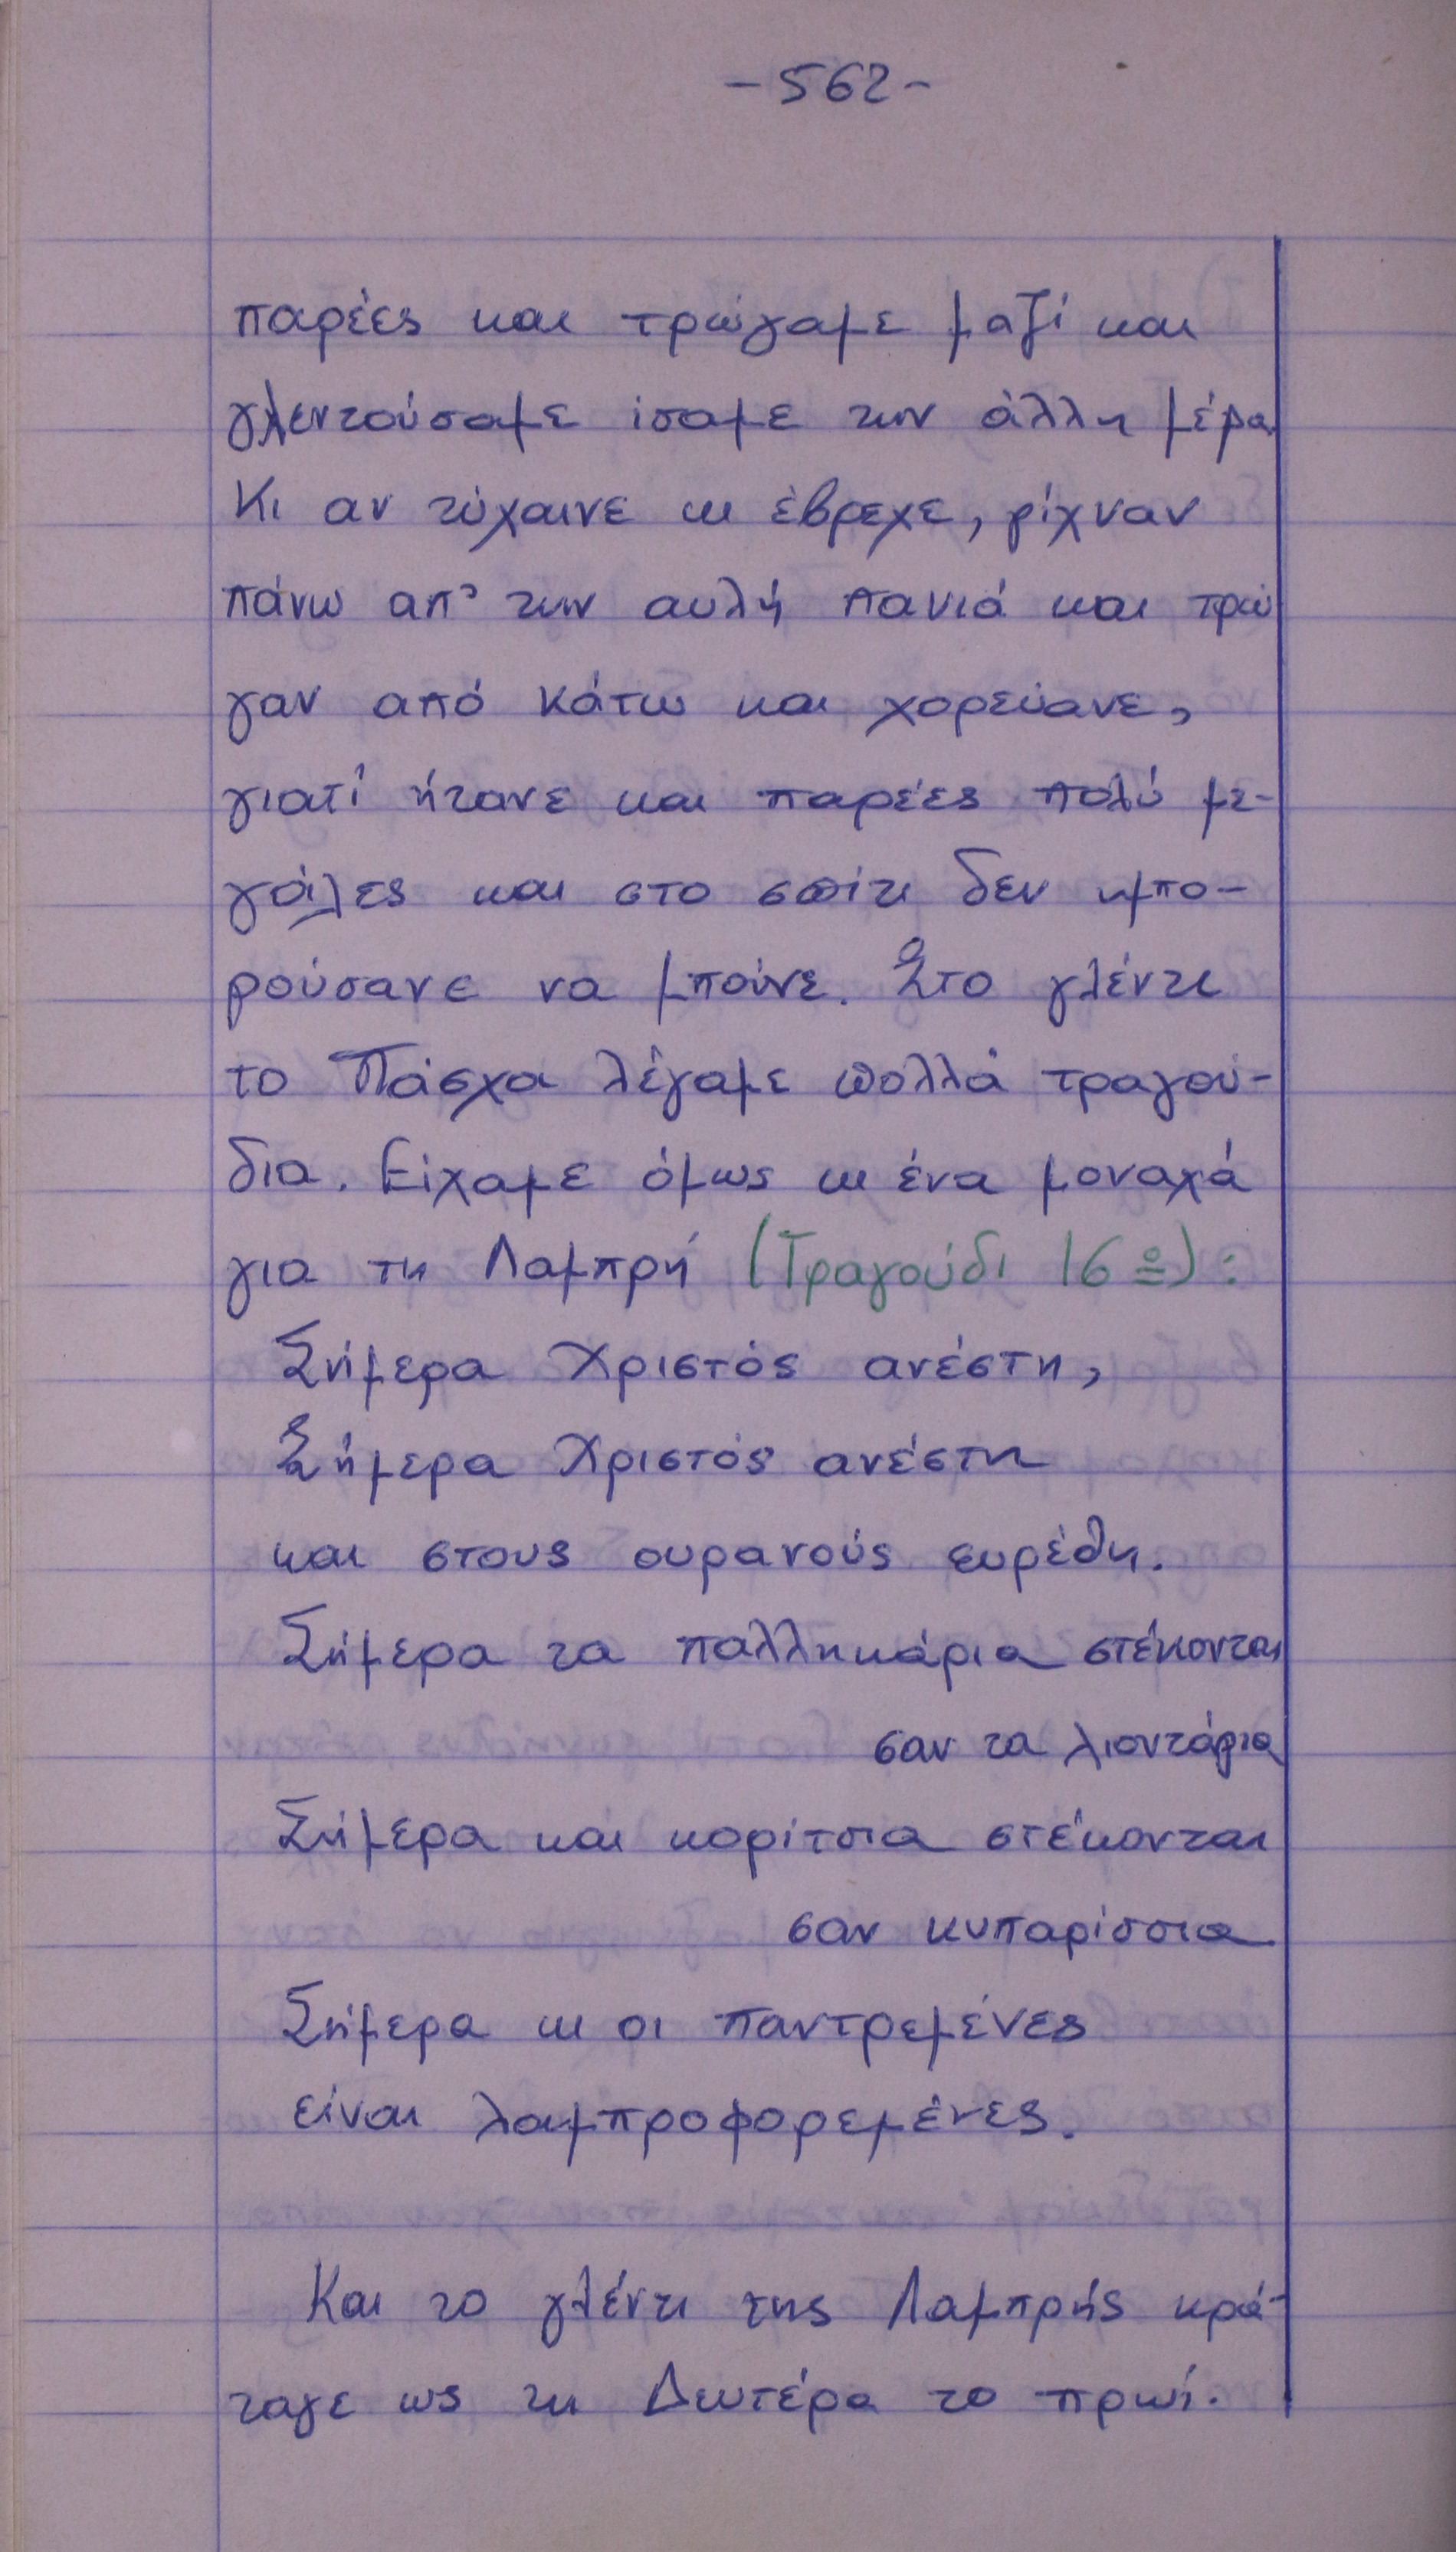 -562-
παρέες και τρώγαμε μαζί και
γλεντούσαμε ίσαμε την άλλη μέρα.
Κι αν τύχαινε κι έβρεχε, ρίχναν
πάνω απ' την αυλή πανιά και τρώ
γαν από κάτω και χορεύανε,
γιατί ήτανε και παρέες πολύ με-
γάλες και στο σπίτι δεν ημπο-
ρούσανε να μπούνε. Στο γλέντι
το Πάσχα λέγαμε πολλά τραγού-
δια. Είχαμε όμως κι ένα μοναχά
για τη Λαμπρή (Τραγούδι 16ο):
Σήμερα Χριστός ανέστη,
Σήμερα Χριστός ανέστη
και στους ουρανούς ευρέθη.
Σήμερα τα παλληκάρια στέκονται
σαν τα λιοντάρια
Σήμερα και κορίτσια στέκονται
σαν κυπαρίσσια
Σήμερα κι οι παντρεμένες
είναι λαμπροφορεμένες.
Και το γλέντι της Λαμπρής κρά-
ταγε ως τη Δευτέρα το πρωί.